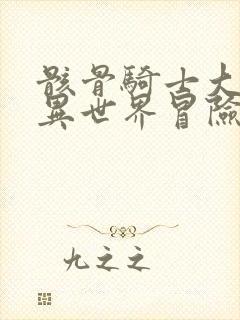 骸骨騎士大
異世界冒險
九之之